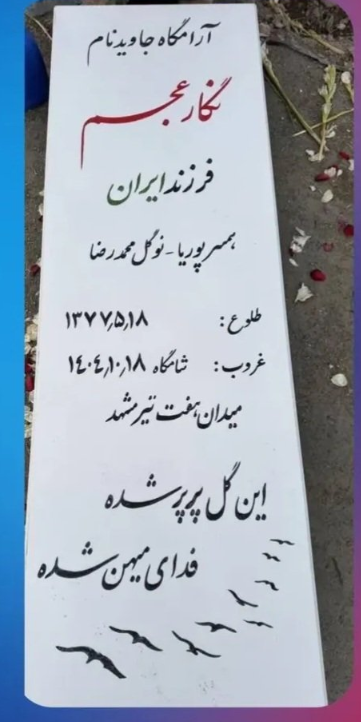 آرامگاه جاویدنام
نگار عجم
فرزند ایران
همسر پوریا - نوگل محمدرضا
طلوع : ۱۳۷۷٫۵٫۱۸
غروب : شامگاه ۱۴۰۴٫۱۰٫۱۸
میدان هفت تیر مشهد
این گل پرپر شده
فدای میهن شده